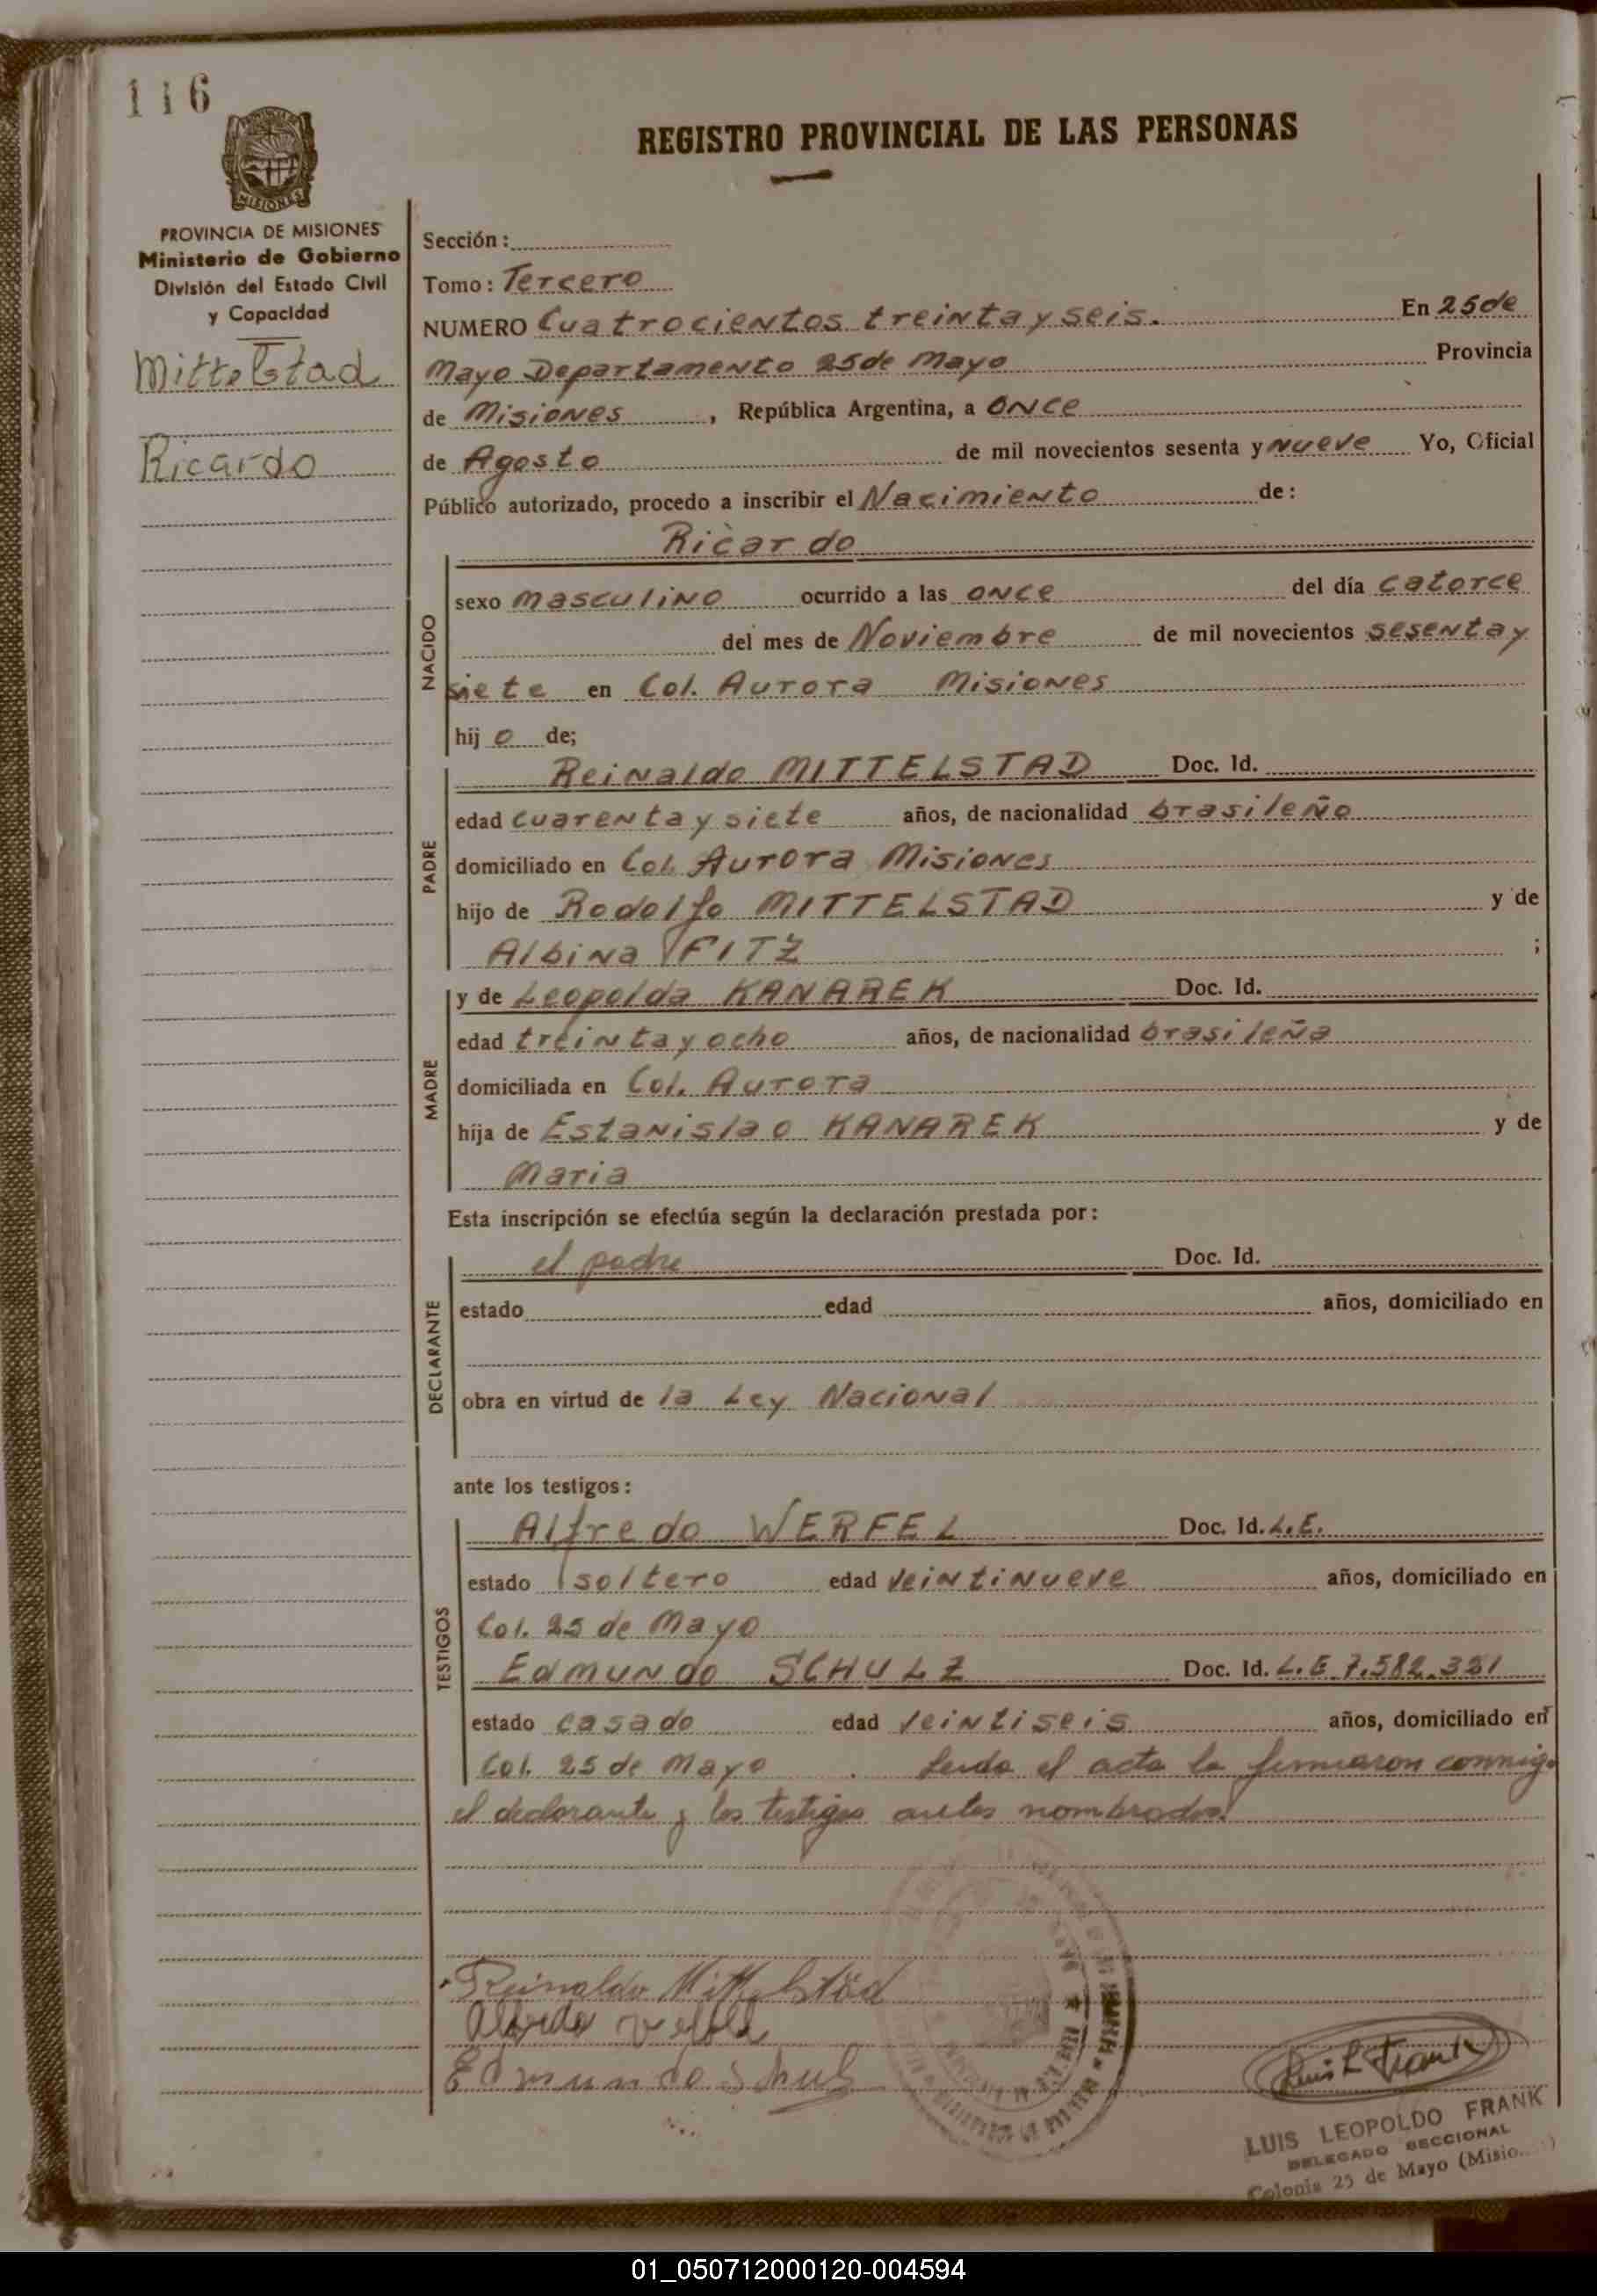 116
REGISTRO PROVINCIAL DE LAS PERSONAS
MISIONES
PROVINCIA DE MISIONES
Ministerio de Gobierno
División del Estado Civil
y Capacidad
Mittelstad
Ricardo
Sección:
Tomo: Tercero
NUMERO Cuatrocientos treinta y seis. En 25 de
Mayo Departamento 25 de Mayo Provincia
de Misiones, República Argentina, a once
de Agosto de mil novecientos sesenta y nueve Yo, Oficial
Público autorizado, procedo a inscribir el Nacimiento de:
Ricardo
NACIDO
sexo masculino ocurrido a las once del día catorce
del mes de Noviembre de mil novecientos sesenta y
siete en Col. Aurora Misiones
hijo de;
PADRE
Reinaldo MITTELSTAD Doc. Id.
edad cuarenta y siete años, de nacionalidad brasileño
domiciliado en Col. Aurora Misiones
hijo de Rodolfo MITTELSTAD y de
Albina FITZ ;
MADRE
y de Leopolda KANAREK Doc. Id.
edad treinta y ocho años, de nacionalidad brasileña
domiciliada en Col. Aurora
hija de Estanislao KANAREK y de
Maria
Esta inscripción se efectúa según la declaración prestada por:
DECLARANTE
el padre Doc. Id.
estado edad años, domiciliado en
obra en virtud de la Ley Nacional
ante los testigos:
TESTIGOS
Alfredo WERFEL Doc. Id. L.E.
estado soltero edad veintinueve años, domiciliado en
Col. 25 de Mayo
Edmundo SCHULZ Doc. Id. L.E. 7.582.321
estado casado edad veintiseis años, domiciliado en
Col. 25 de Mayo. Leida el acta la firmaron conmigo
el declarante y los testigos antes nombrados.
Reinaldo Mittelstäd
Edmundo Schulz
Luis L Frank
LUIS LEOPOLDO FRANK
DELEGADO SECCIONAL
Colonia 25 de Mayo
01_050712000120-004594